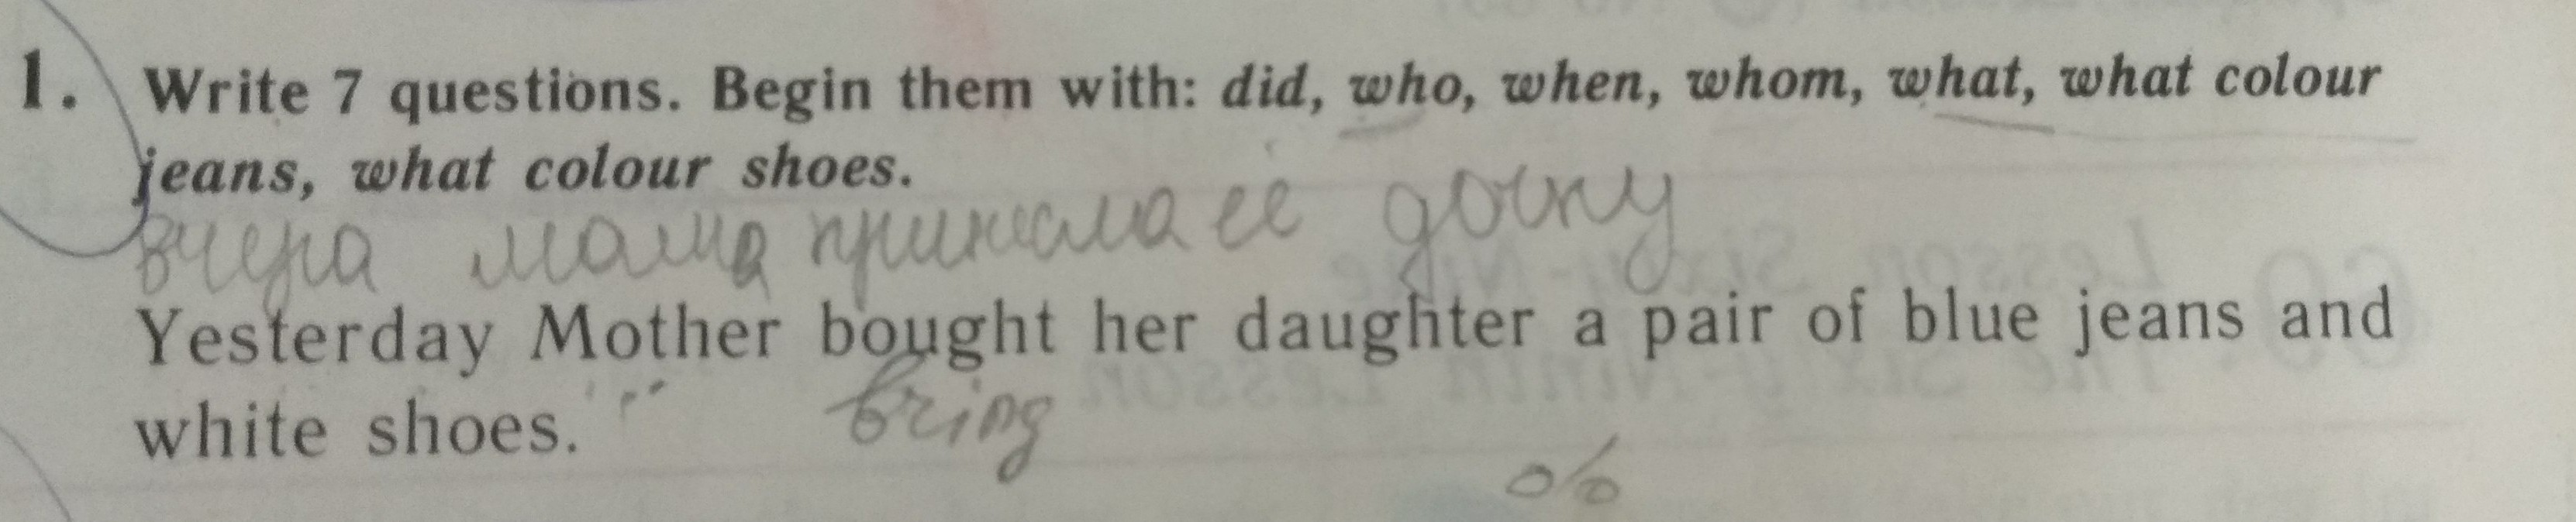 1. Write 7 questions. Begin them with: did, who, when, whom, what, what colour
jeans, what colour shoes.
вчера мама принесла ее дочку
Yesterday Mother bought her daughter a pair of blue jeans and
white shoes.
bring
%